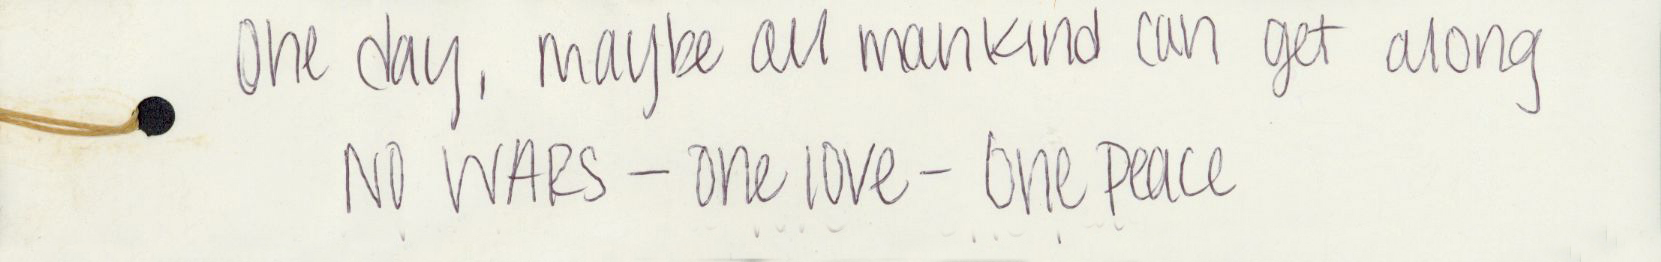 One day, maybe all mankind can get along
NO WARS - One love - One peace